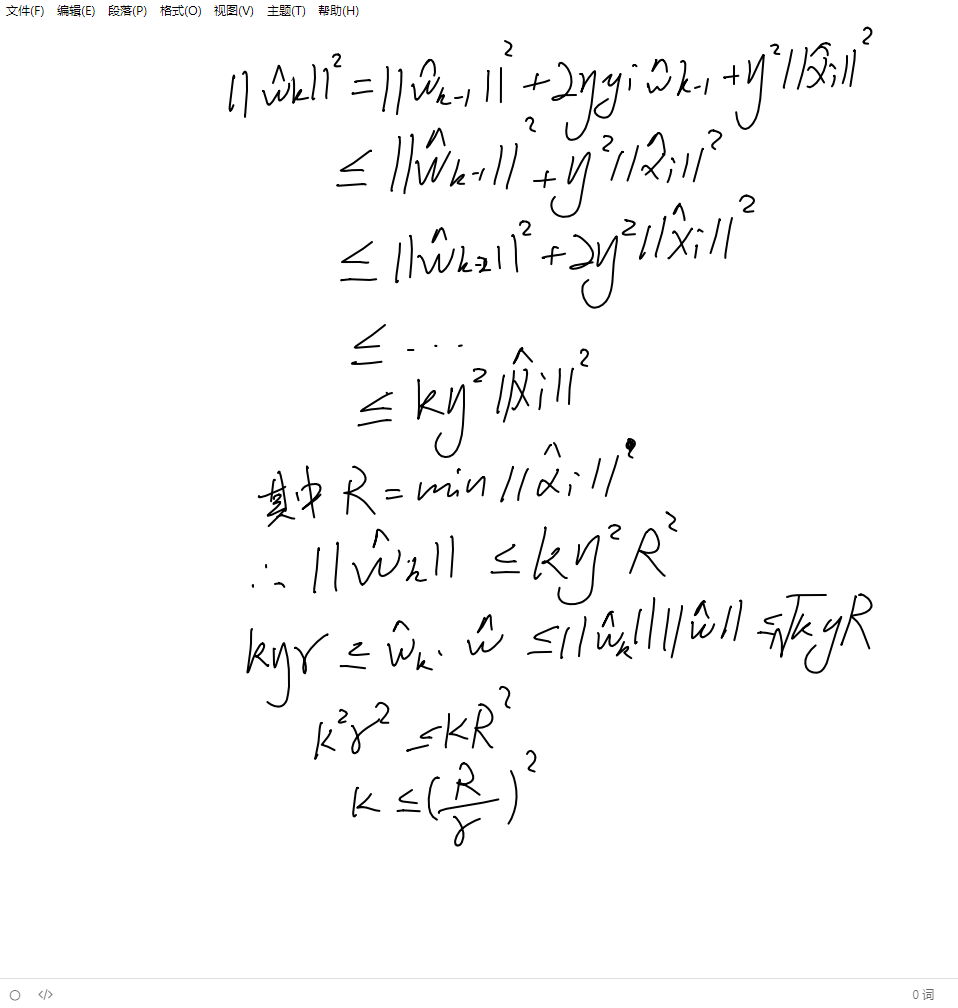 文件(F) 编辑(E) 段落(P) 格式(O) 视图(V) 主题(T) 帮助(H)
||ŵₖ||² = ||ŵₖ₋₁||² + 2yyiŵₖ₋₁ + y²||x̂ᵢ||²
≤ ||ŵₖ₋₁||² + y²||x̂ᵢ||²
≤ ||ŵₖ₋₂||² + 2y²||x̂ᵢ||²
≤ ...
≤ ky²||x̂ᵢ||²
其中 R = min ||x̂ᵢ||²
∴ ||ŵₖ|| ≤ ky²R²
kyr ≥ ŵₖ · ŵ ≤ ||ŵₖ|| ||ŵ|| ≤ √k yR
k²r² ≤ kR²
k ≤ (R/r)²
</> 0 词